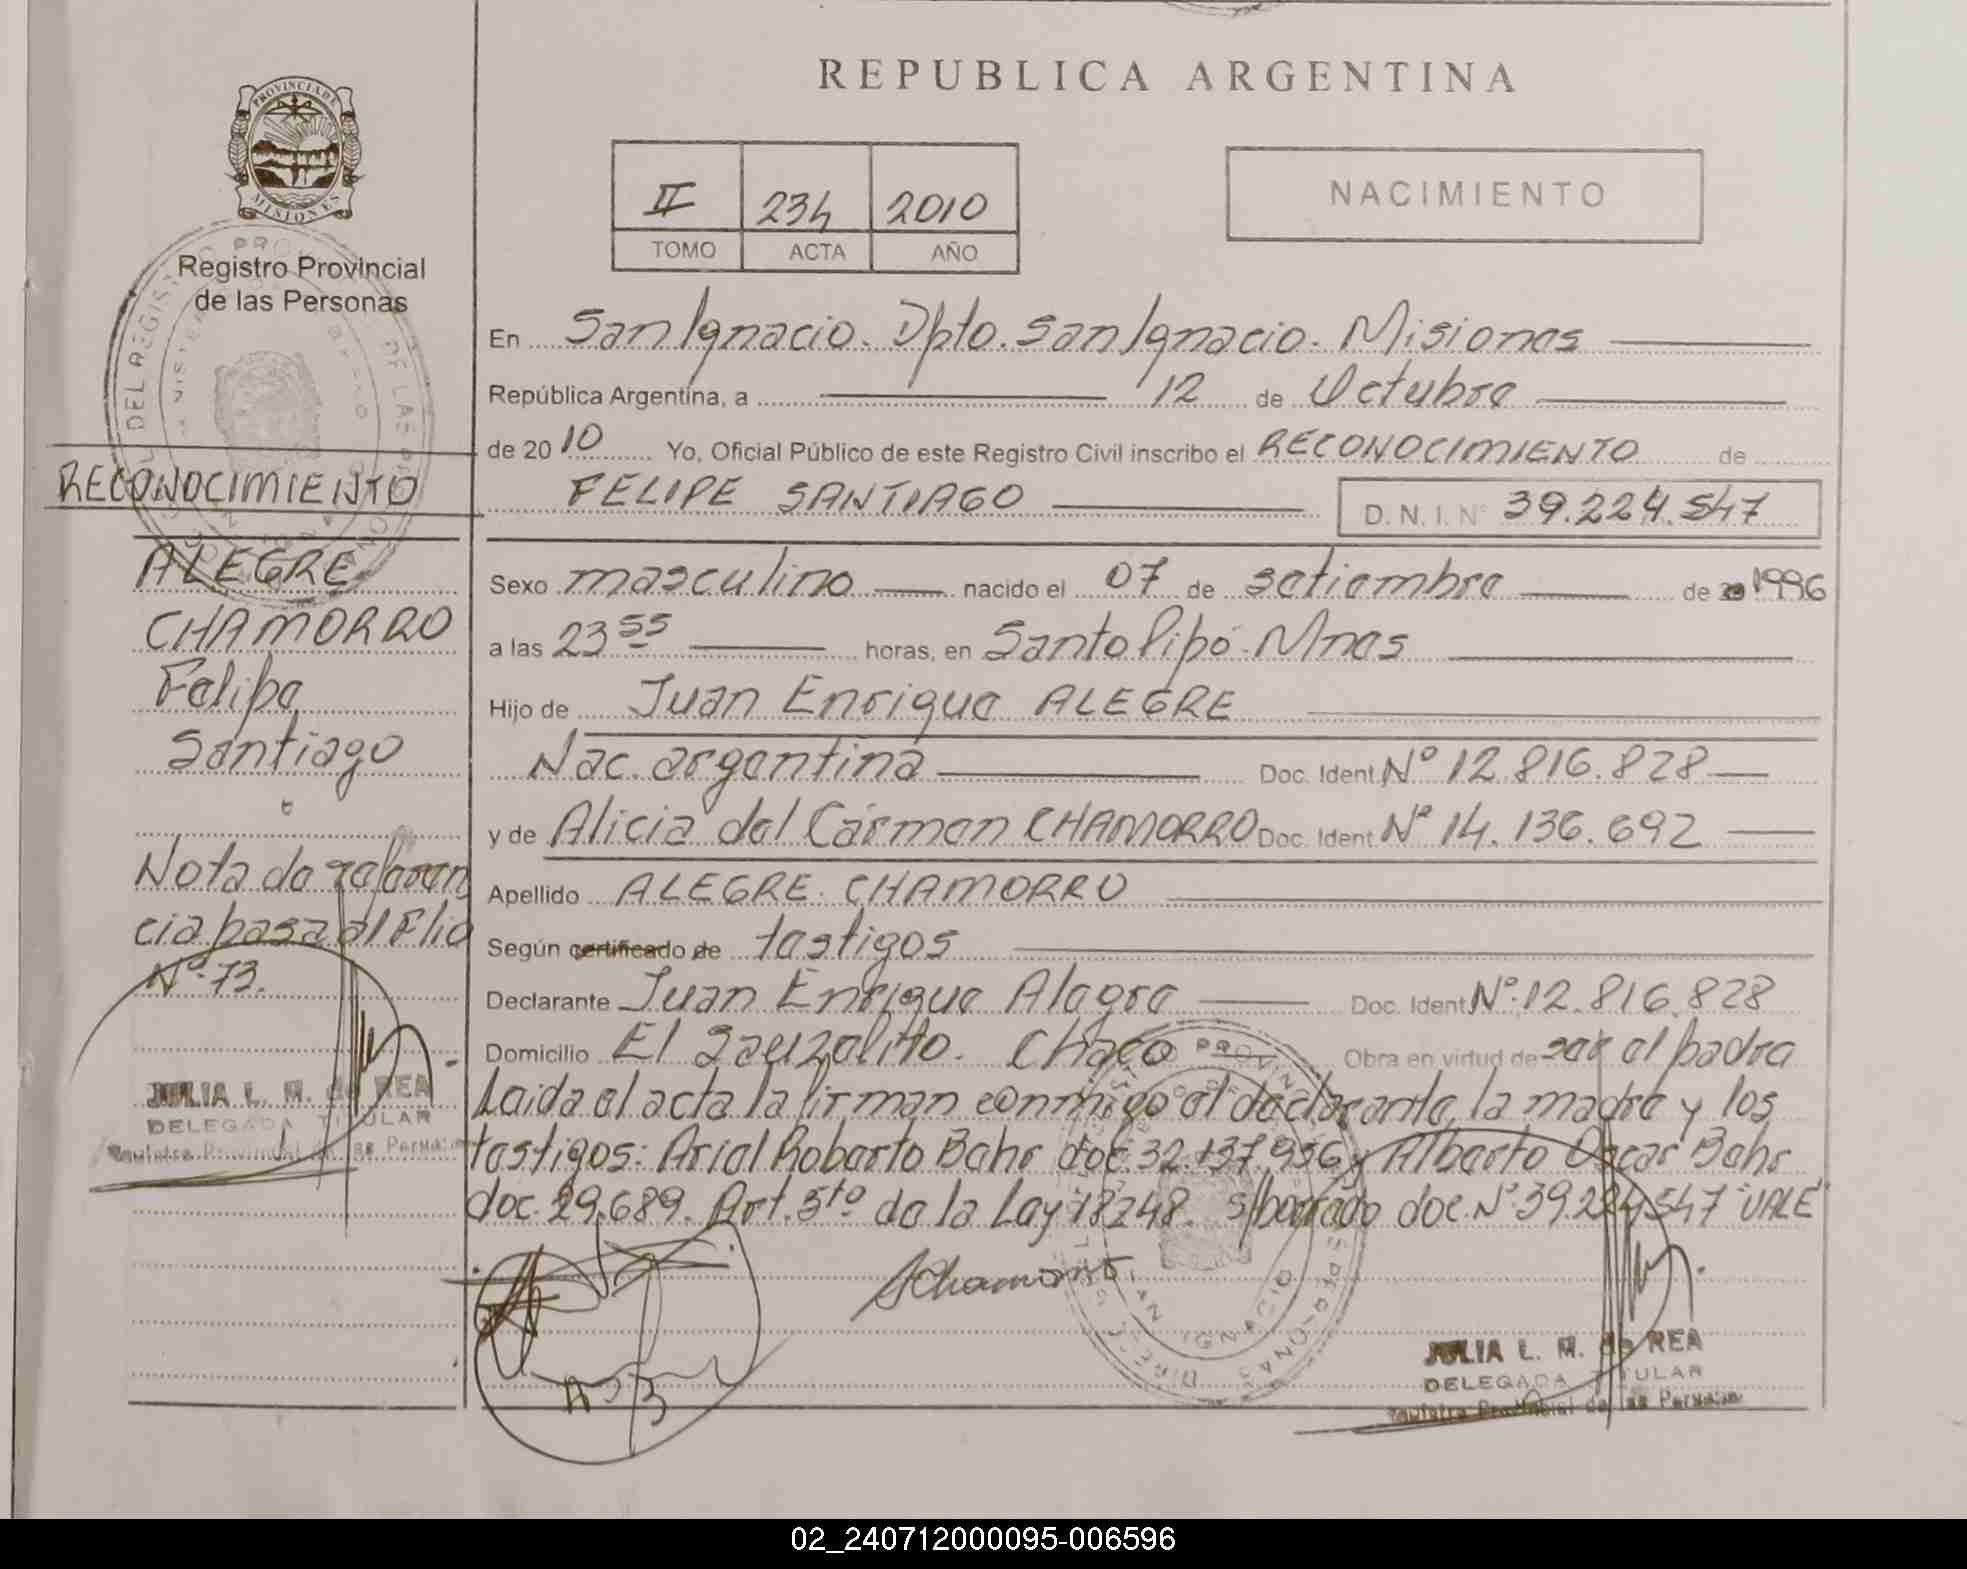 PROVINCIA DE
MISIONES
Registro Provincial
de las Personas
RECONOCIMIENTO
ALEGRE
CHAMORRO
Felipe
Santiago
Nota de referen
cia pasa al Flio
Nº 73.
JULIA L. M. de REA
DELEGADA TITULAR
Registro Provincial de las Personas
REPUBLICA ARGENTINA
II 234 2010
TOMO ACTA AÑO
NACIMIENTO
En San Ignacio. Dpto. San Ignacio. Misiones
República Argentina, a 12 de Octubre
de 2010 Yo, Oficial Público de este Registro Civil inscribo el RECONOCIMIENTO de
FELIPE SANTIAGO D.N.I. Nº 39.224.547
Sexo masculino nacido el 07 de setiembre de 1996
a las 23 55 horas, en Santo Pipó - Mnes
Hijo de Juan Enrique ALEGRE
Nac. argentina Doc. Ident. Nº 12.816.828
y de Alicia del Cármen CHAMORRO Doc. Ident. Nº 14.136.692
Apellido ALEGRE CHAMORRO
Según certificado de testigos
Declarante Juan Enrique Alegre Doc. Ident. Nº 12.816.828
Domicilio El Sauzalito. Chaco Obra en virtud de ser el padre
Leida el acta la firman conmigo el declarante, la madre y los
testigos: Ariel Roberto Bahr doc. 32.137.956 y Alberto Oscar Bahr
doc. 29.689. Art. 5to de la Ley 18248. s/borrado doc. Nº 39.224.547 "VALE"
AChamorro
JULIA L. M. de REA
DELEGADA TITULAR
Registro Provincial de las Personas
02_240712000095-006596